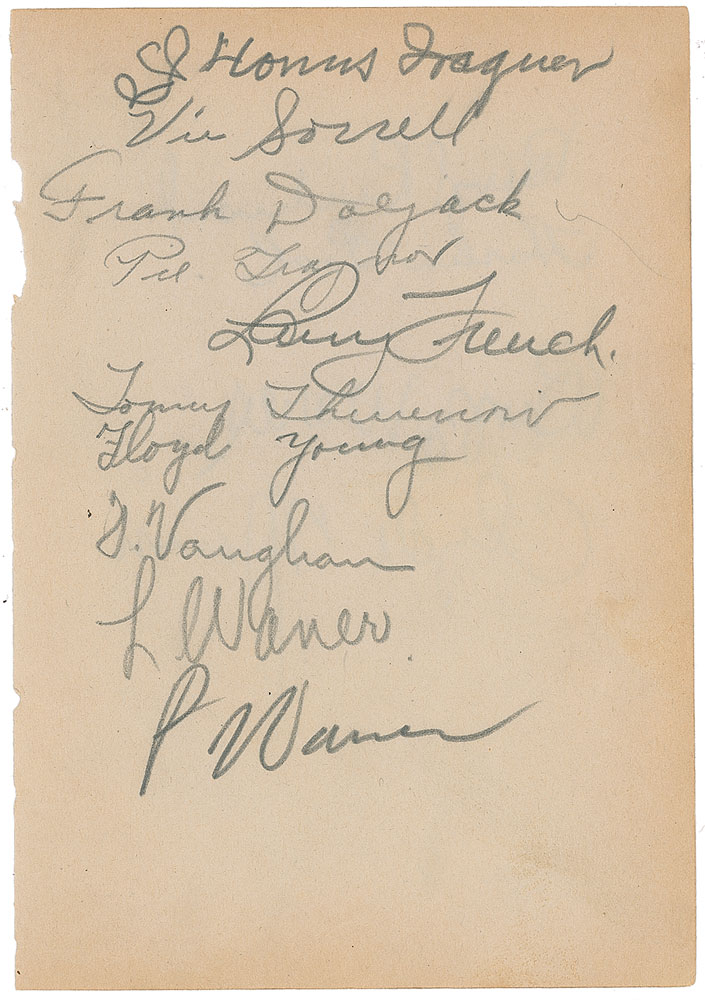 J Honus Wagner
Vic Sorrell
Frank Doljack
Pie Traynor
Larry French.
Tommy Thevenow
Floyd Young
F. Vaughan
L Waner
P Waner